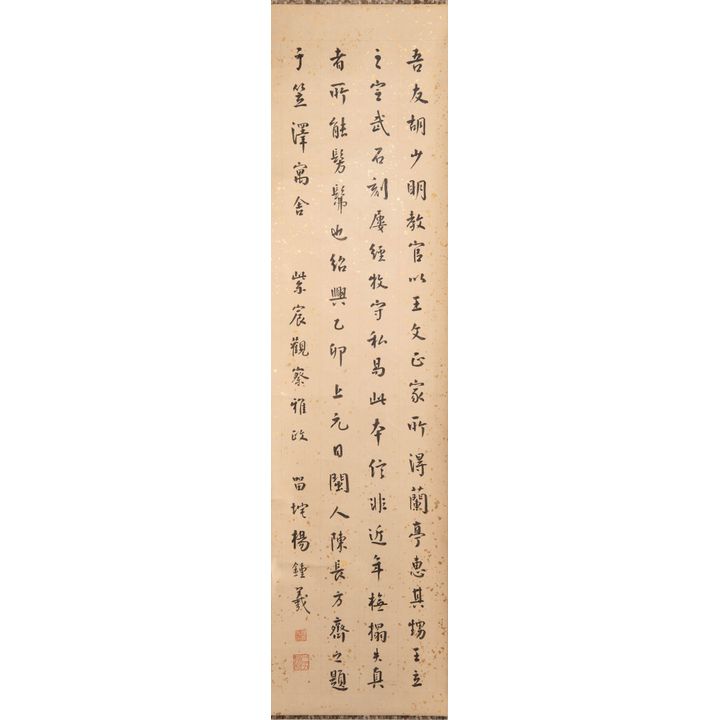 吾友胡少明教官以王文正家所得蘭亭惠其甥王立
之定武石刻屢經牧守私易此本信非近年橅搨失真
者所能髣髴也紹興乙卯上元日閩人陳長方齊之題
于笠澤寓舍 紫宸觀察雅政 留垞楊鍾羲